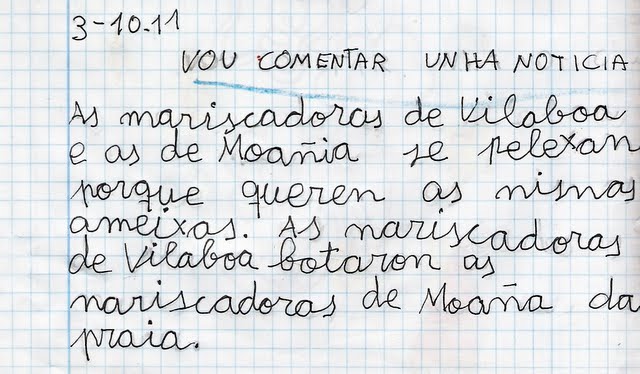 3-10.11
VOU COMENTAR UNHA NOTICIA
As mariscadoras de Vilaboa
e as de Moañia se pelexan
porque queren as nismas
ameixas. As nariscadoras
de Vilaboa botaron as
nariscadoras de Moaña da
praia.